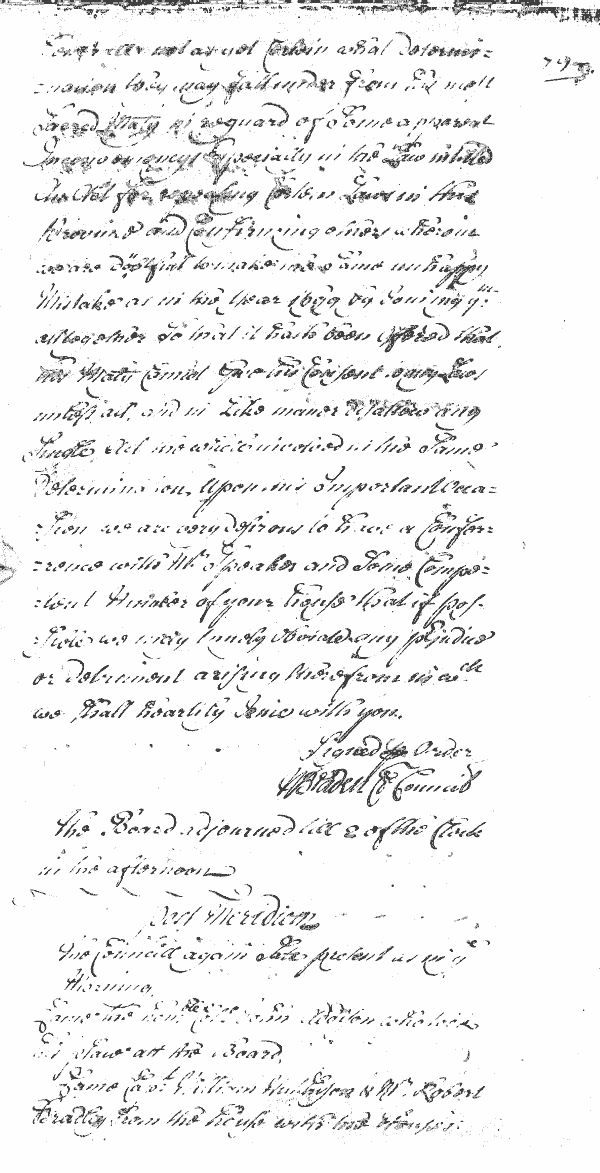 not as yet Certain what Determi=
=nation they may fall under from his most
Sacred Maty in reguard of Some apparent
Inconveniencys Especially in the Law intitled
An Act for repealing Certain Laws in this
Province and Confirming others wherein
we are Doubtful to make the Same unhappy
Mistake as in the Year 1699 by Joining ym
alltogether So that it hath been offered that
his Matys Consent Laws
and in Like manor Disallow any
Single Act the whole involved in the Same
Determination, Upon this Important Occa=
=sion we are very desirous to have a Confer=
=rence with Mr Speaker and Some Compe=
=tent Number of your house that if pos=
=sible we may timely obviate any prejudice
or detriment arising therefrom in wch
we shall heartily Joine with you.
Signed p Order
WBladen Cl Council
The Board adjourned till 2 of the Clock
in the afternoon
Post Meridiem
The Councill again Sate present as in ye
Morning.
Came the honble Colo John Addison who took
his place att the Board.
Came Capt William & Mr Robert
Bradley from the house with two